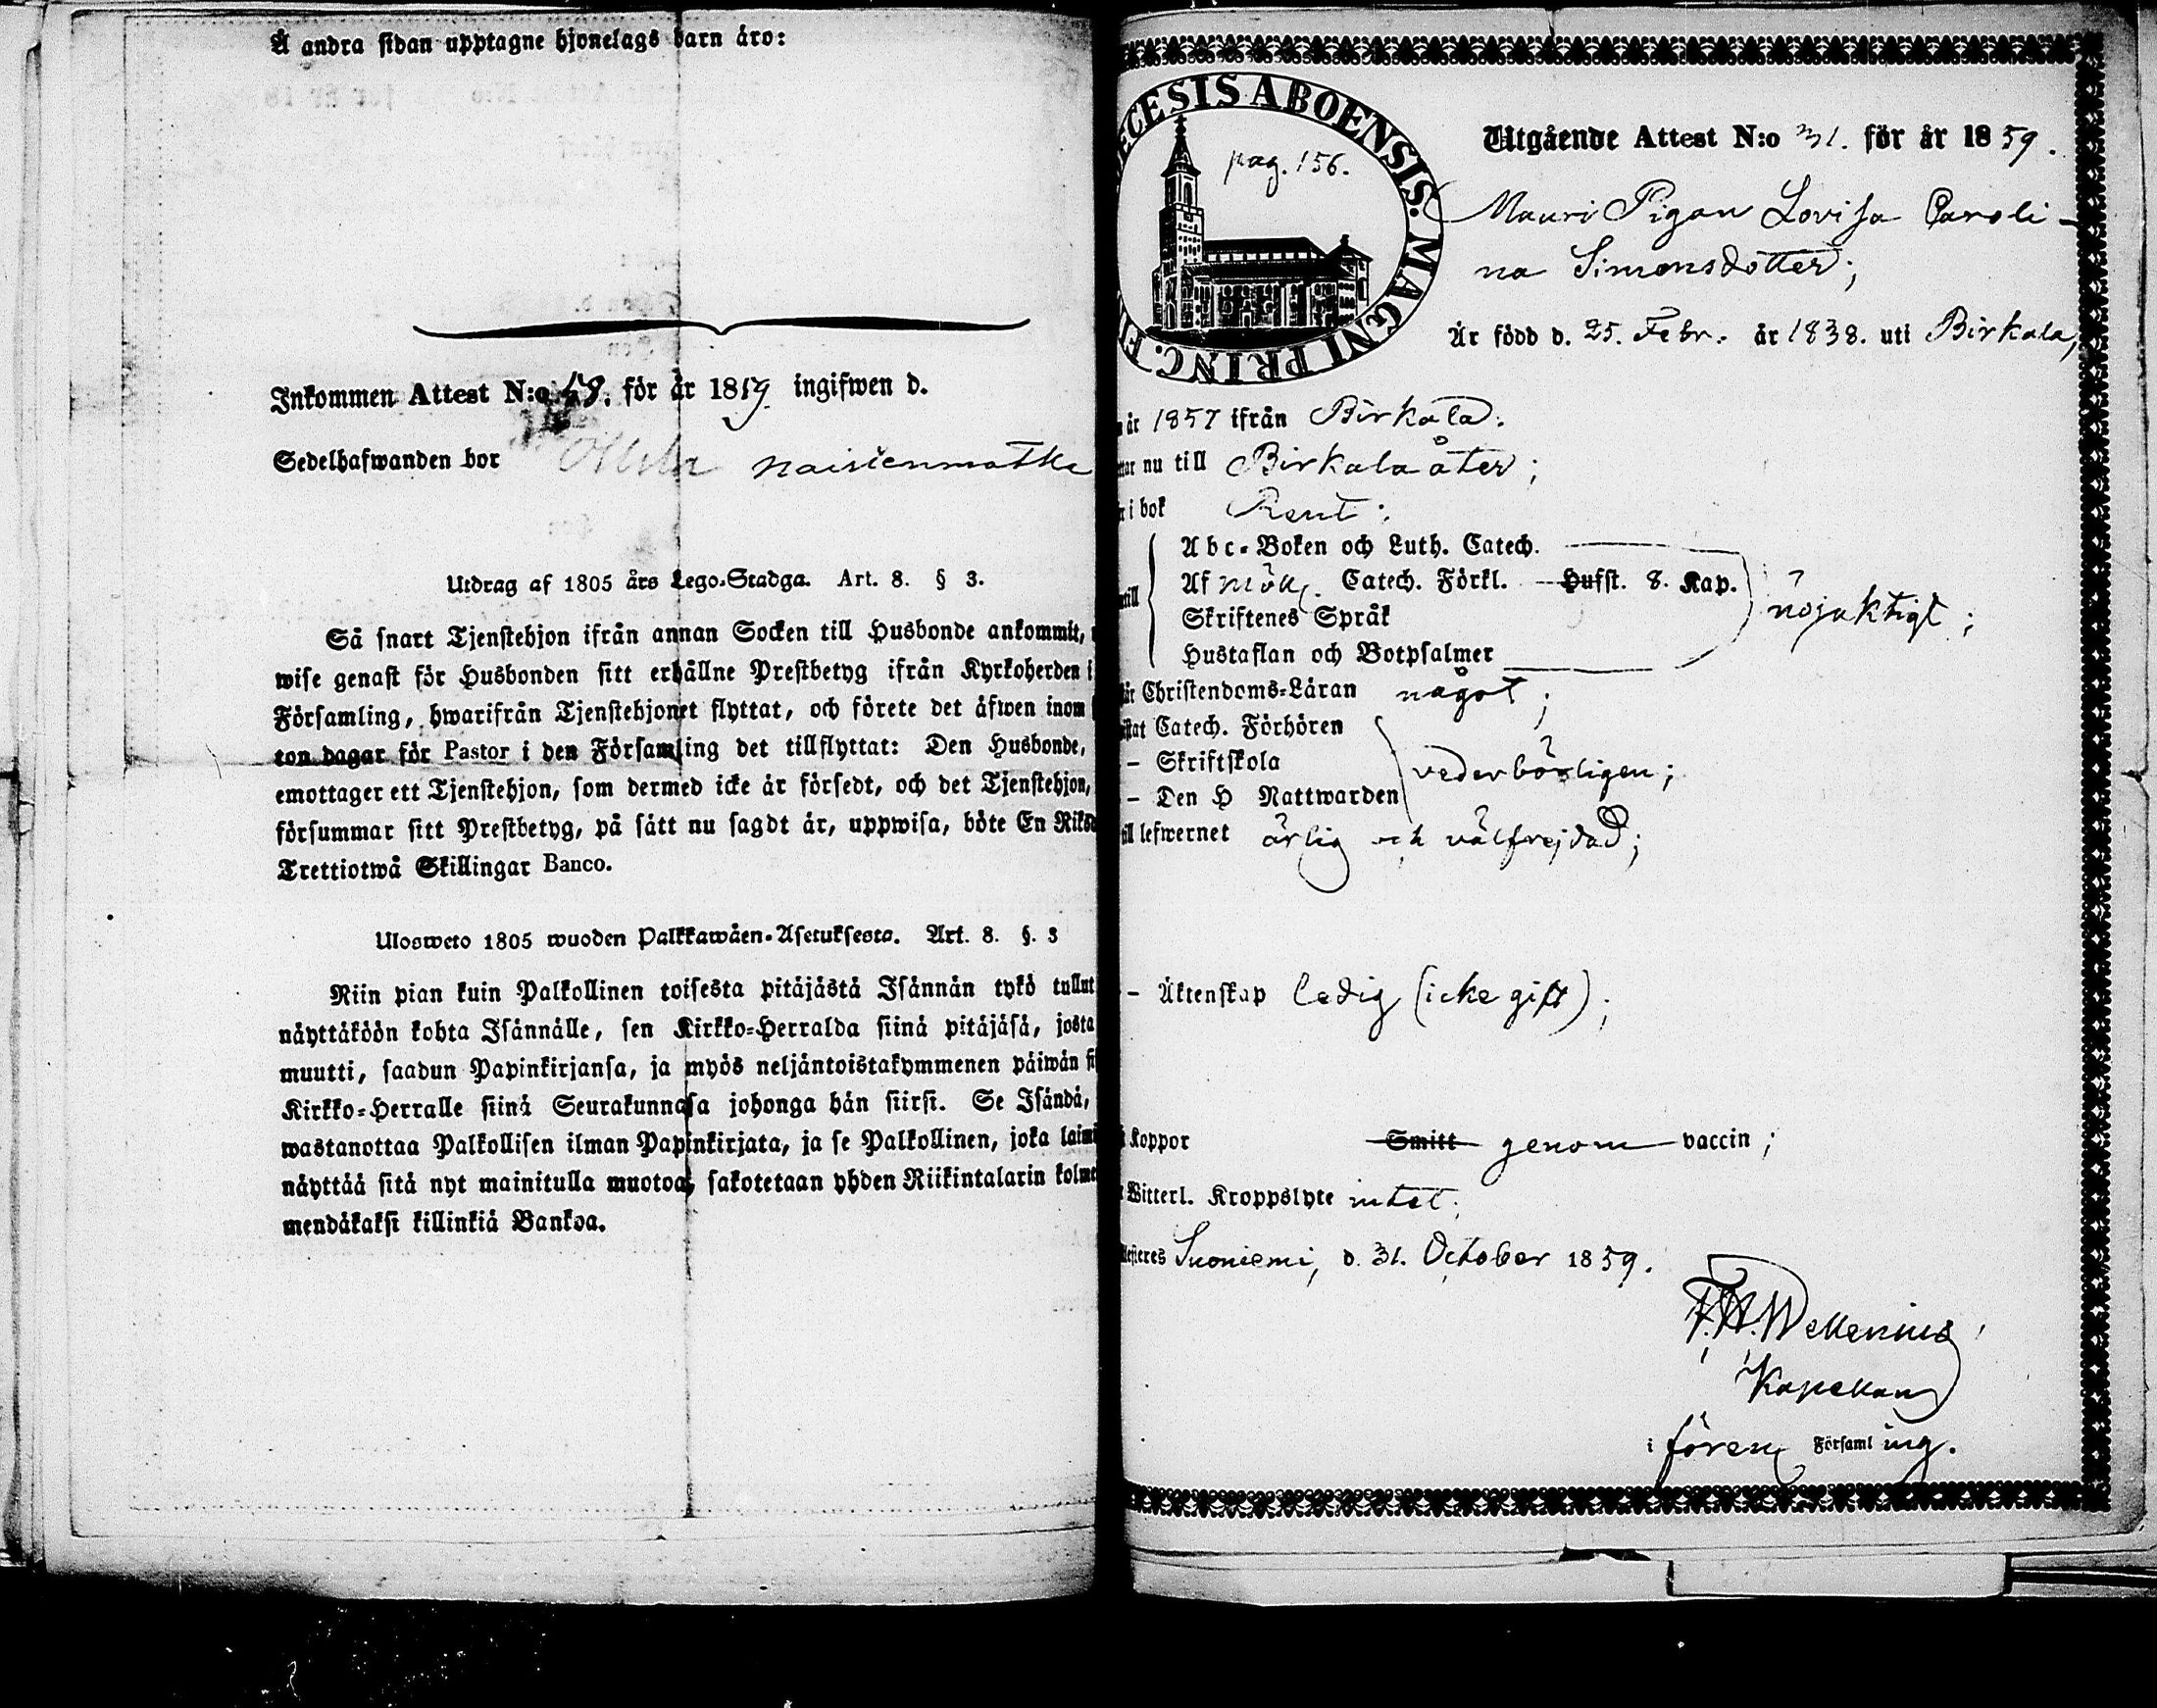 Å andra sidan upptagne hjonelags barn äro:
Inkommen Attest N:o 49. för år 1859 ingifwen d.
Sedelhafwanden bor naistenmatka
Utdrag af 1805 års Lego-Stadga. Art. 8. § 3.
Så snart Tjenstehjon ifrån annan Socken till Husbonde ankommit,
wise genast för Husbonden sitt erhållne Prestbetyg ifrån Kyrkoherden i
Församling, hwarifrån Tjenstehjonet flyttat, och förete det äfwen inom
ton dagar för Pastor i den Församling det tillflyttat: Den Husbonde,
emottager ett Tjenstehjon, som dermed icke är försedt, och det Tjenstehjon,
försummar sitt Prestbetyg, på sätt nu sagdt är, uppwisa, böte En Riksd
Trettiotwå Skillingar Banco.
Ulosweto 1805 wuoden Palkkawäen-Asetuksesta. Art. 8. §. 3
Niin pian kuin Palkollinen toisesta pitäjästä Isännän tykö tullut
näyttäköön kohta Isännälle, sen Kirkko-Herralda siinä pitäjäsä, josta
muutti, saadun Papinkirjansa, ja myös neljäntoistakymmenen päiwän si
Kirkko-Herralle siinä Seurakunnasa johonga hän siirsi. Se Isändä,
wastanottaa Palkollisen ilman Papinkirjata, ja se Palkollinen, joka laimi
näyttää sitä nyt mainitulla muotoa, sakotetaan yhden Riikintalarin kolme
mendäkaksi killinkiä Bankoa.
ECESIS ABOENSIS. MAGNI PRINC. FI
pag. 156.
Utgående Attest N:o 31. för år 1859.
Mauri Pigan Lovisa Caroli-
na Simonsdotter;
Är född d. 25. Febr. år 1838. uti Birkala,
år 1857 ifrån Birkala.
nu till Birkala åter;
i bok Rent;
Abc-Boken och Luth. Catech.
Af Catech. Förkl. Hufst. 8. Kap.
Skriftenes Språk
nöjaktigt;
Hustaflan och Botpsalmer
Christendoms-Läran något;
stat Catech. Förhören
- Skriftskola
vederbörligen;
- Den H Nattwarden
till lefwernet ärlig och välfrejdad;
- Äktenskap ledig (icke gift);
koppor Smitt genom vaccin;
Witterl. Kroppslyte intet;
esteres Suoniemi, d. 31. October 1859.
Kapellan
i Församling.